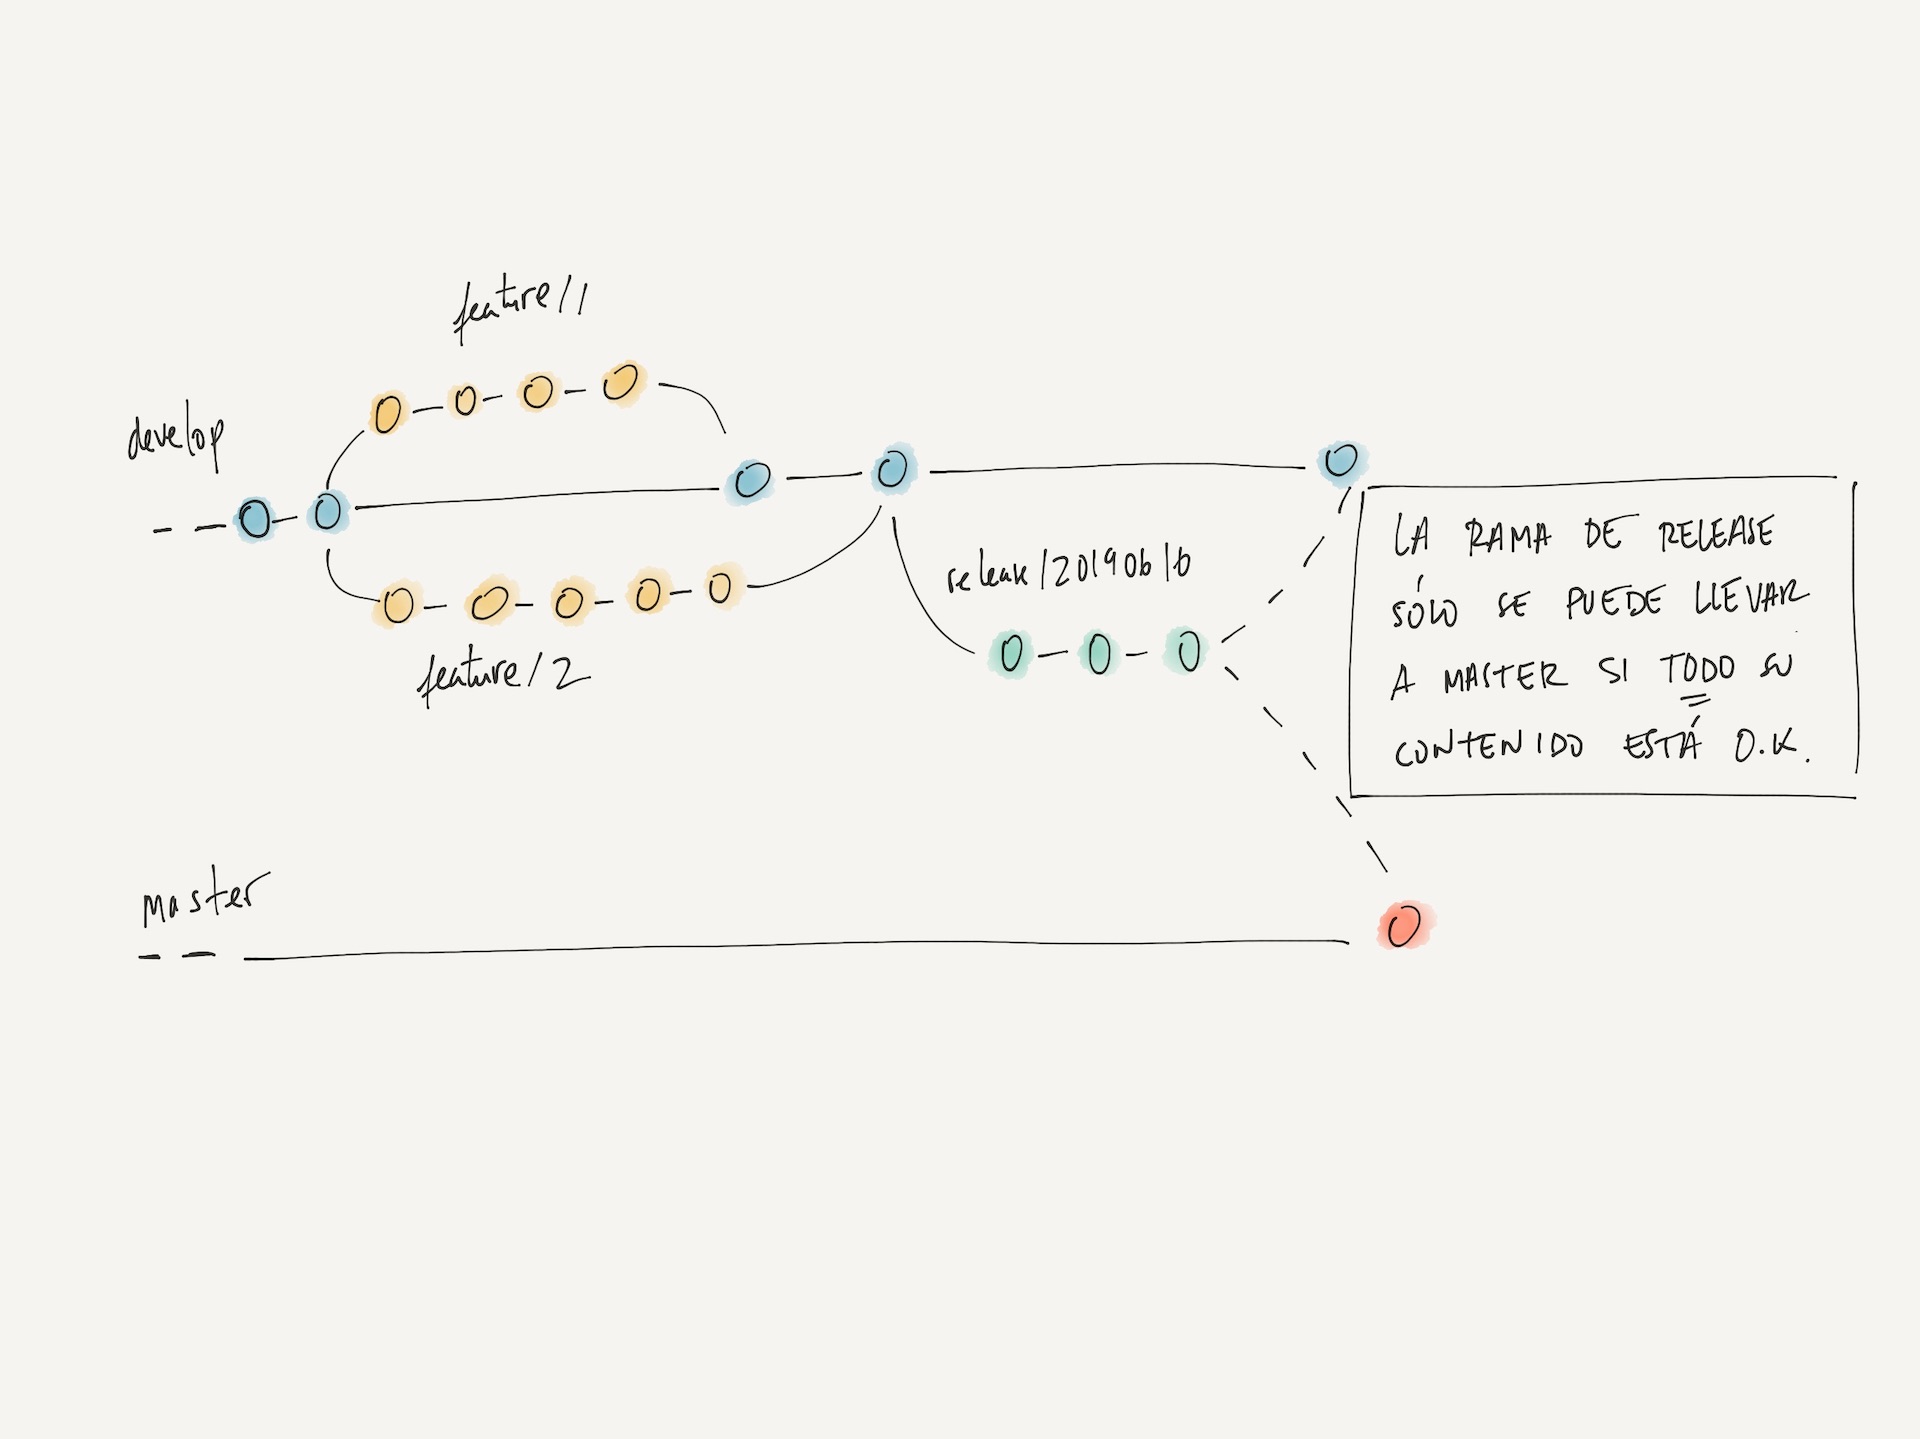 feature/1
develop
release/20190610
feature/2
LA RAMA DE RELEASE
SÓLO SE PUEDE LLEVAR
A MASTER SI TODO SU
CONTENIDO ESTÁ O.K.
master